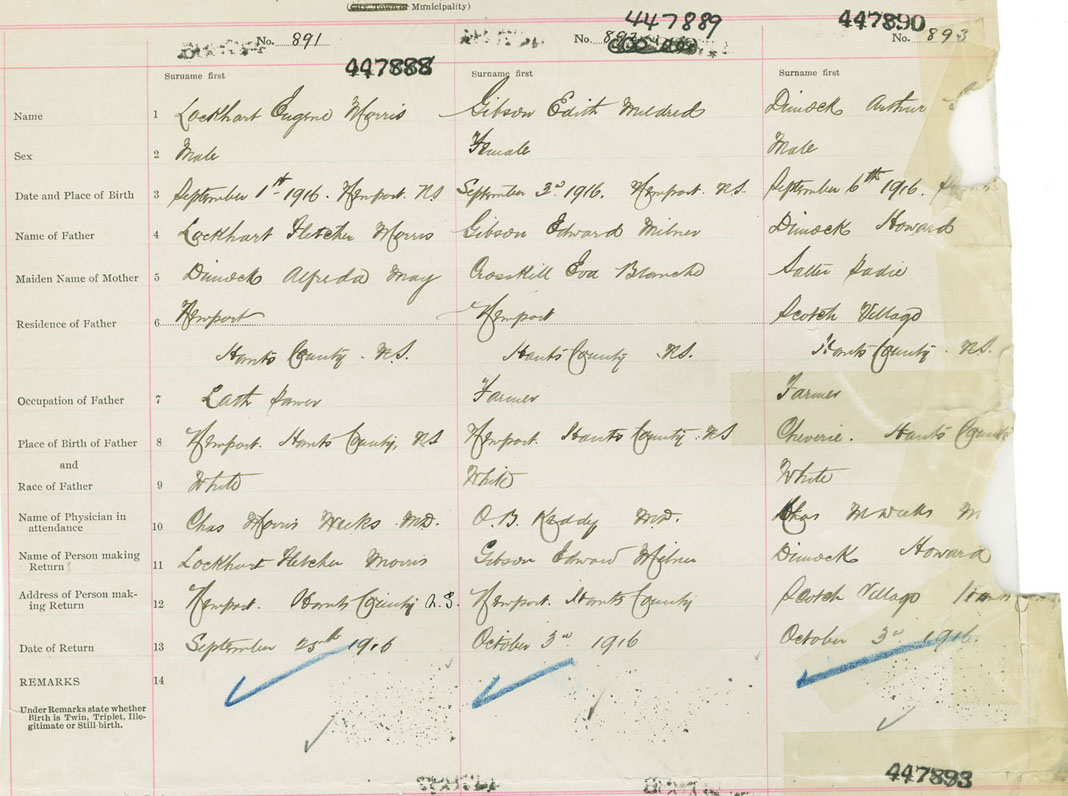 (City, Town or Municipality)
447889
447890
No. 891
No. 892
No. 893
447888
Surname first
Surname first
Surname first
Name 1 Lockhart Eugene Morris Gibson Edith Mildred Dimock Arthur
Sex 2 Male Female Male
Date and Place of Birth 3 September 1st 1916. Newport. NS September 3d 1916. Newport. NS. September 6th 1916.
Name of Father 4 Lockhart Fletcher Morris Gibson Edward Milner Dimock Howard
Maiden Name of Mother 5 Dimock Alfreda May Crosskill Eva Blanche Salter Sadie
Residence of Father 6 Newport Newport Scotch Village
Hants County. N.S. Hants County N.S. Hants County. N.S.
Occupation of Father 7 Lath Sawer Farmer Farmer
Place of Birth of Father 8 Newport. Hants County, NS Newport. Hants County. NS Cheverie. Hants County
and
Race of Father 9 White White White
Name of Physician in
attendance 10 Chas Morris Weeks MD. O.B. Keddy MD. Chas M Weeks M
Name of Person making
Return 11 Lockhart Fletcher Morris Gibson Edward Milner Dimock Howard
Address of Person mak-
ing Return 12 Newport. Hants County N.S. Newport. Hants County Scotch Village Hants
Date of Return 13 September 25th 1916 October 3rd 1916 October 3rd 1916.
REMARKS 14
Under Remarks state whether
Birth is Twin, Triplet, Ille-
gitimate or Still-birth.
447893